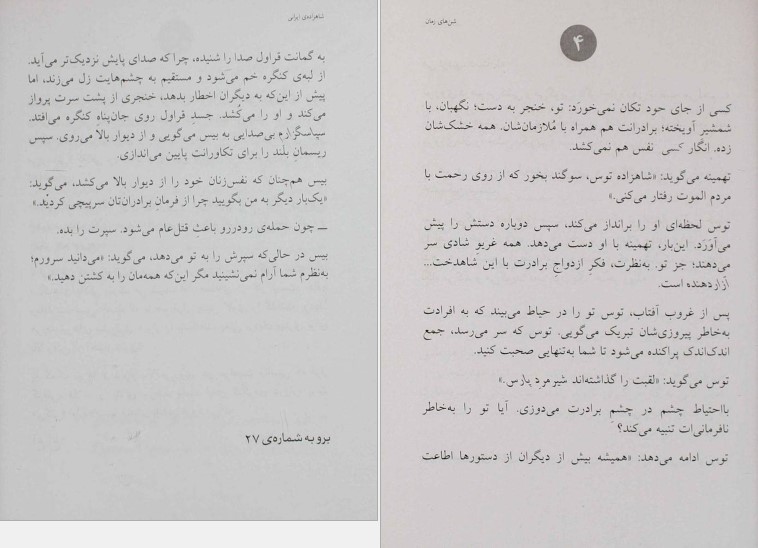 شن‌های زمان
۴
کسی از جای خود تکان نمی‌خورَد: تو، خنجر به دست؛ نگهبان، با
شمشیرِ آویخته؛ برادرانت هم همراه با مُلازمان‌شان. همه خشک‌شان
زده. انگار کسی نفس هم نمی‌کشد.
تهمینه می‌گوید: «شاهزاده توس، سوگند بخور که از روی رحمت با
مردم الموت رفتار می‌کنی.»
توس لحظه‌ای او را برانداز می‌کند، سپس دوباره دستش را پیش
می‌آوَرَد. این‌بار، تهمینه با او دست می‌دهد. همه غریو شادی سر
می‌دهند؛ جز تو. به‌نظرت، فکرِ ازدواجِ برادرت با این شاهدخت...
آزاردهنده است.
پس از غروب آفتاب، توس تو را در حیاط می‌بیند که به افرادت
به‌خاطر پیروزی‌شان تبریک می‌گویی. توس که سر می‌رسد، جمع
اندک‌اندک پراکنده می‌شود تا شما به‌تنهایی صحبت کنید.
توس می‌گوید: «لقبت را گذاشته‌اند شیرمردِ پارس.»
بااحتیاط چشم در چشم برادرت می‌دوزی. آیا تو را به‌خاطر
نافرمانی‌ات تنبیه می‌کند؟
توس ادامه می‌دهد: «همیشه بیش از دیگران از دستورها اطاعت
شاهزاده‌ی ایرانی
به گمانت قراول صدا را شنیده، چرا که صدای پایش نزدیک‌تر می‌آید.
از لبه‌ی کنگره خم می‌شود و مستقیم به چشم‌هایت زل می‌زند، اما
پیش از این‌که به دیگران اخطار بدهد، خنجری از پشت سرت پرواز
می‌کند و او را می‌کُشد. جسدِ قراول روی جان‌پناهِ کنگره می‌افتد.
سپاسگزارمِ بی‌صدایی به بیس می‌گویی و از دیوار بالا می‌روی. سپس
ریسمانِ بلند را برای تکاورانت پایین می‌اندازی.
بیس هم‌چنان که نفس‌زنان خود را از دیوار بالا می‌کشد، می‌گوید:
«یک‌بار دیگر به من بگویید چرا از فرمانِ برادران‌تان سرپیچی کردید.»
ــ چون حمله‌ی رودررو باعثِ قتل‌عام می‌شود. سپرت را بده.
بیس در حالی‌که سپرش را به تو می‌دهد، می‌گوید: «می‌دانید سرورم؛
به‌نظرم شما آرام نمی‌نشینید مگر این‌که همه‌مان را به کشتن دهید.»
برو به شماره‌ی ۲۷